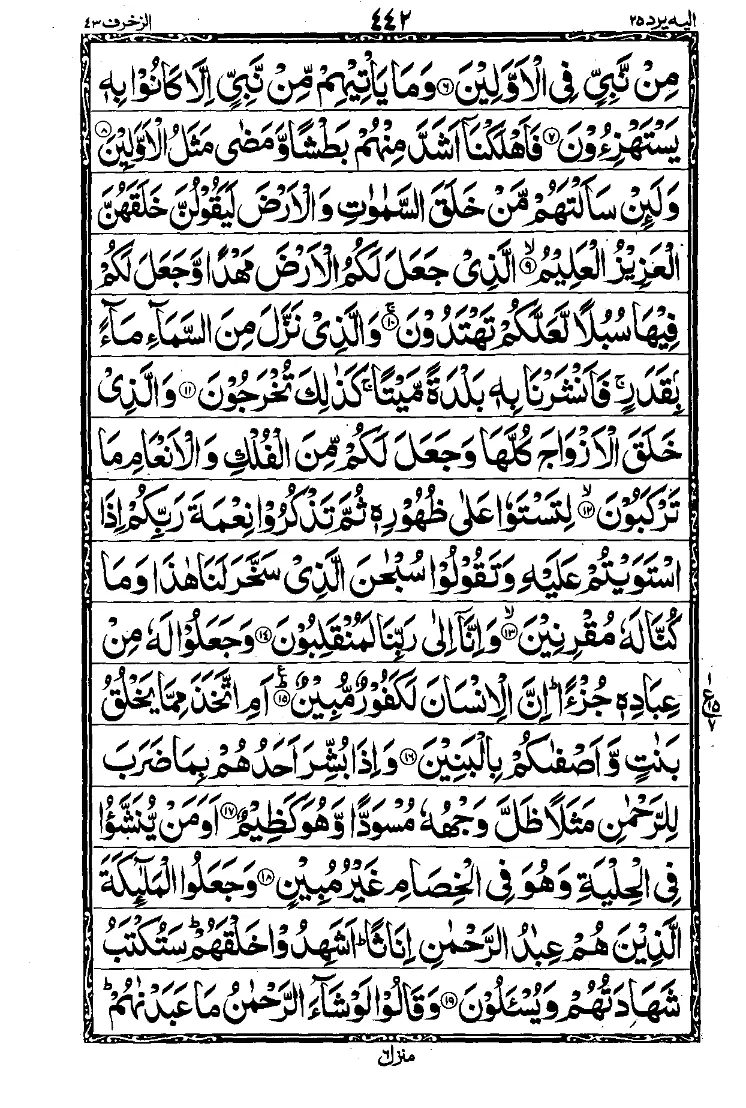 الیه یرد ۲۵
۴۴۲
الزخرف ۴۳
مِنْ نَّبِیٍّ فِی الْاَوَّلِیْنَ ﴿۶﴾ وَمَا یَاْتِیْهِمْ مِّنْ نَّبِیٍّ اِلَّا کَانُوْا بِهٖ
یَسْتَهْزِءُوْنَ ﴿۷﴾ فَاَهْلَکْنَاۤ اَشَدَّ مِنْهُمْ بَطْشًا وَّمَضٰی مَثَلُ الْاَوَّلِیْنَ ﴿۸﴾
وَلَئِنْ سَاَلْتَهُمْ مَّنْ خَلَقَ السَّمٰوٰتِ وَالْاَرْضَ لَیَقُوْلُنَّ خَلَقَهُنَّ
الْعَزِیْزُ الْعَلِیْمُ ﴿۹﴾ۙ الَّذِیْ جَعَلَ لَکُمُ الْاَرْضَ مَهْدًا وَّجَعَلَ لَکُمْ
فِیْهَا سُبُلًا لَّعَلَّکُمْ تَهْتَدُوْنَ ﴿۱۰﴾ۚ وَالَّذِیْ نَزَّلَ مِنَ السَّمَآءِ مَآءًۢ
بِقَدَرٍ ۚ فَاَنْشَرْنَا بِهٖ بَلْدَةً مَّیْتًا ۚ کَذٰلِکَ تُخْرَجُوْنَ ﴿۱۱﴾ وَالَّذِیْ
خَلَقَ الْاَزْوَاجَ کُلَّهَا وَجَعَلَ لَکُمْ مِّنَ الْفُلْکِ وَالْاَنْعَامِ مَا
تَرْکَبُوْنَ ﴿۱۲﴾ۙ لِتَسْتَوٗا عَلٰی ظُهُوْرِهٖ ثُمَّ تَذْکُرُوْا نِعْمَةَ رَبِّکُمْ اِذَا
اسْتَوَیْتُمْ عَلَیْهِ وَتَقُوْلُوْا سُبْحٰنَ الَّذِیْ سَخَّرَ لَنَا هٰذَا وَمَا
کُنَّا لَهٗ مُقْرِنِیْنَ ﴿۱۳﴾ۙ وَاِنَّاۤ اِلٰی رَبِّنَا لَمُنْقَلِبُوْنَ ﴿۱۴﴾ وَجَعَلُوْا لَهٗ مِنْ
عِبَادِهٖ جُزْءًا ؕ اِنَّ الْاِنْسَانَ لَکَفُوْرٌ مُّبِیْنٌ ﴿۱۵﴾ؕ ع اَمِ اتَّخَذَ مِمَّا یَخْلُقُ
۱ ع ۱۵ ۷
بَنٰتٍ وَّاَصْفٰىکُمْ بِالْبَنِیْنَ ﴿۱۶﴾ وَاِذَا بُشِّرَ اَحَدُهُمْ بِمَا ضَرَبَ
لِلرَّحْمٰنِ مَثَلًا ظَلَّ وَجْهُهٗ مُسْوَدًّا وَّهُوَ کَظِیْمٌ ﴿۱۷﴾ اَوَمَنْ یُّنَشَّؤُا
فِی الْحِلْیَةِ وَهُوَ فِی الْخِصَامِ غَیْرُ مُبِیْنٍ ﴿۱۸﴾ وَجَعَلُوا الْمَلٰٓئِکَةَ
الَّذِیْنَ هُمْ عِبٰدُ الرَّحْمٰنِ اِنَاثًا ؕ اَشَهِدُوْا خَلْقَهُمْ ؕ سَتُکْتَبُ
شَهَادَتُهُمْ وَیُسْـَٔلُوْنَ ﴿۱۹﴾ وَقَالُوْا لَوْ شَآءَ الرَّحْمٰنُ مَا عَبَدْنٰهُمْ ؕ
منزل ۶